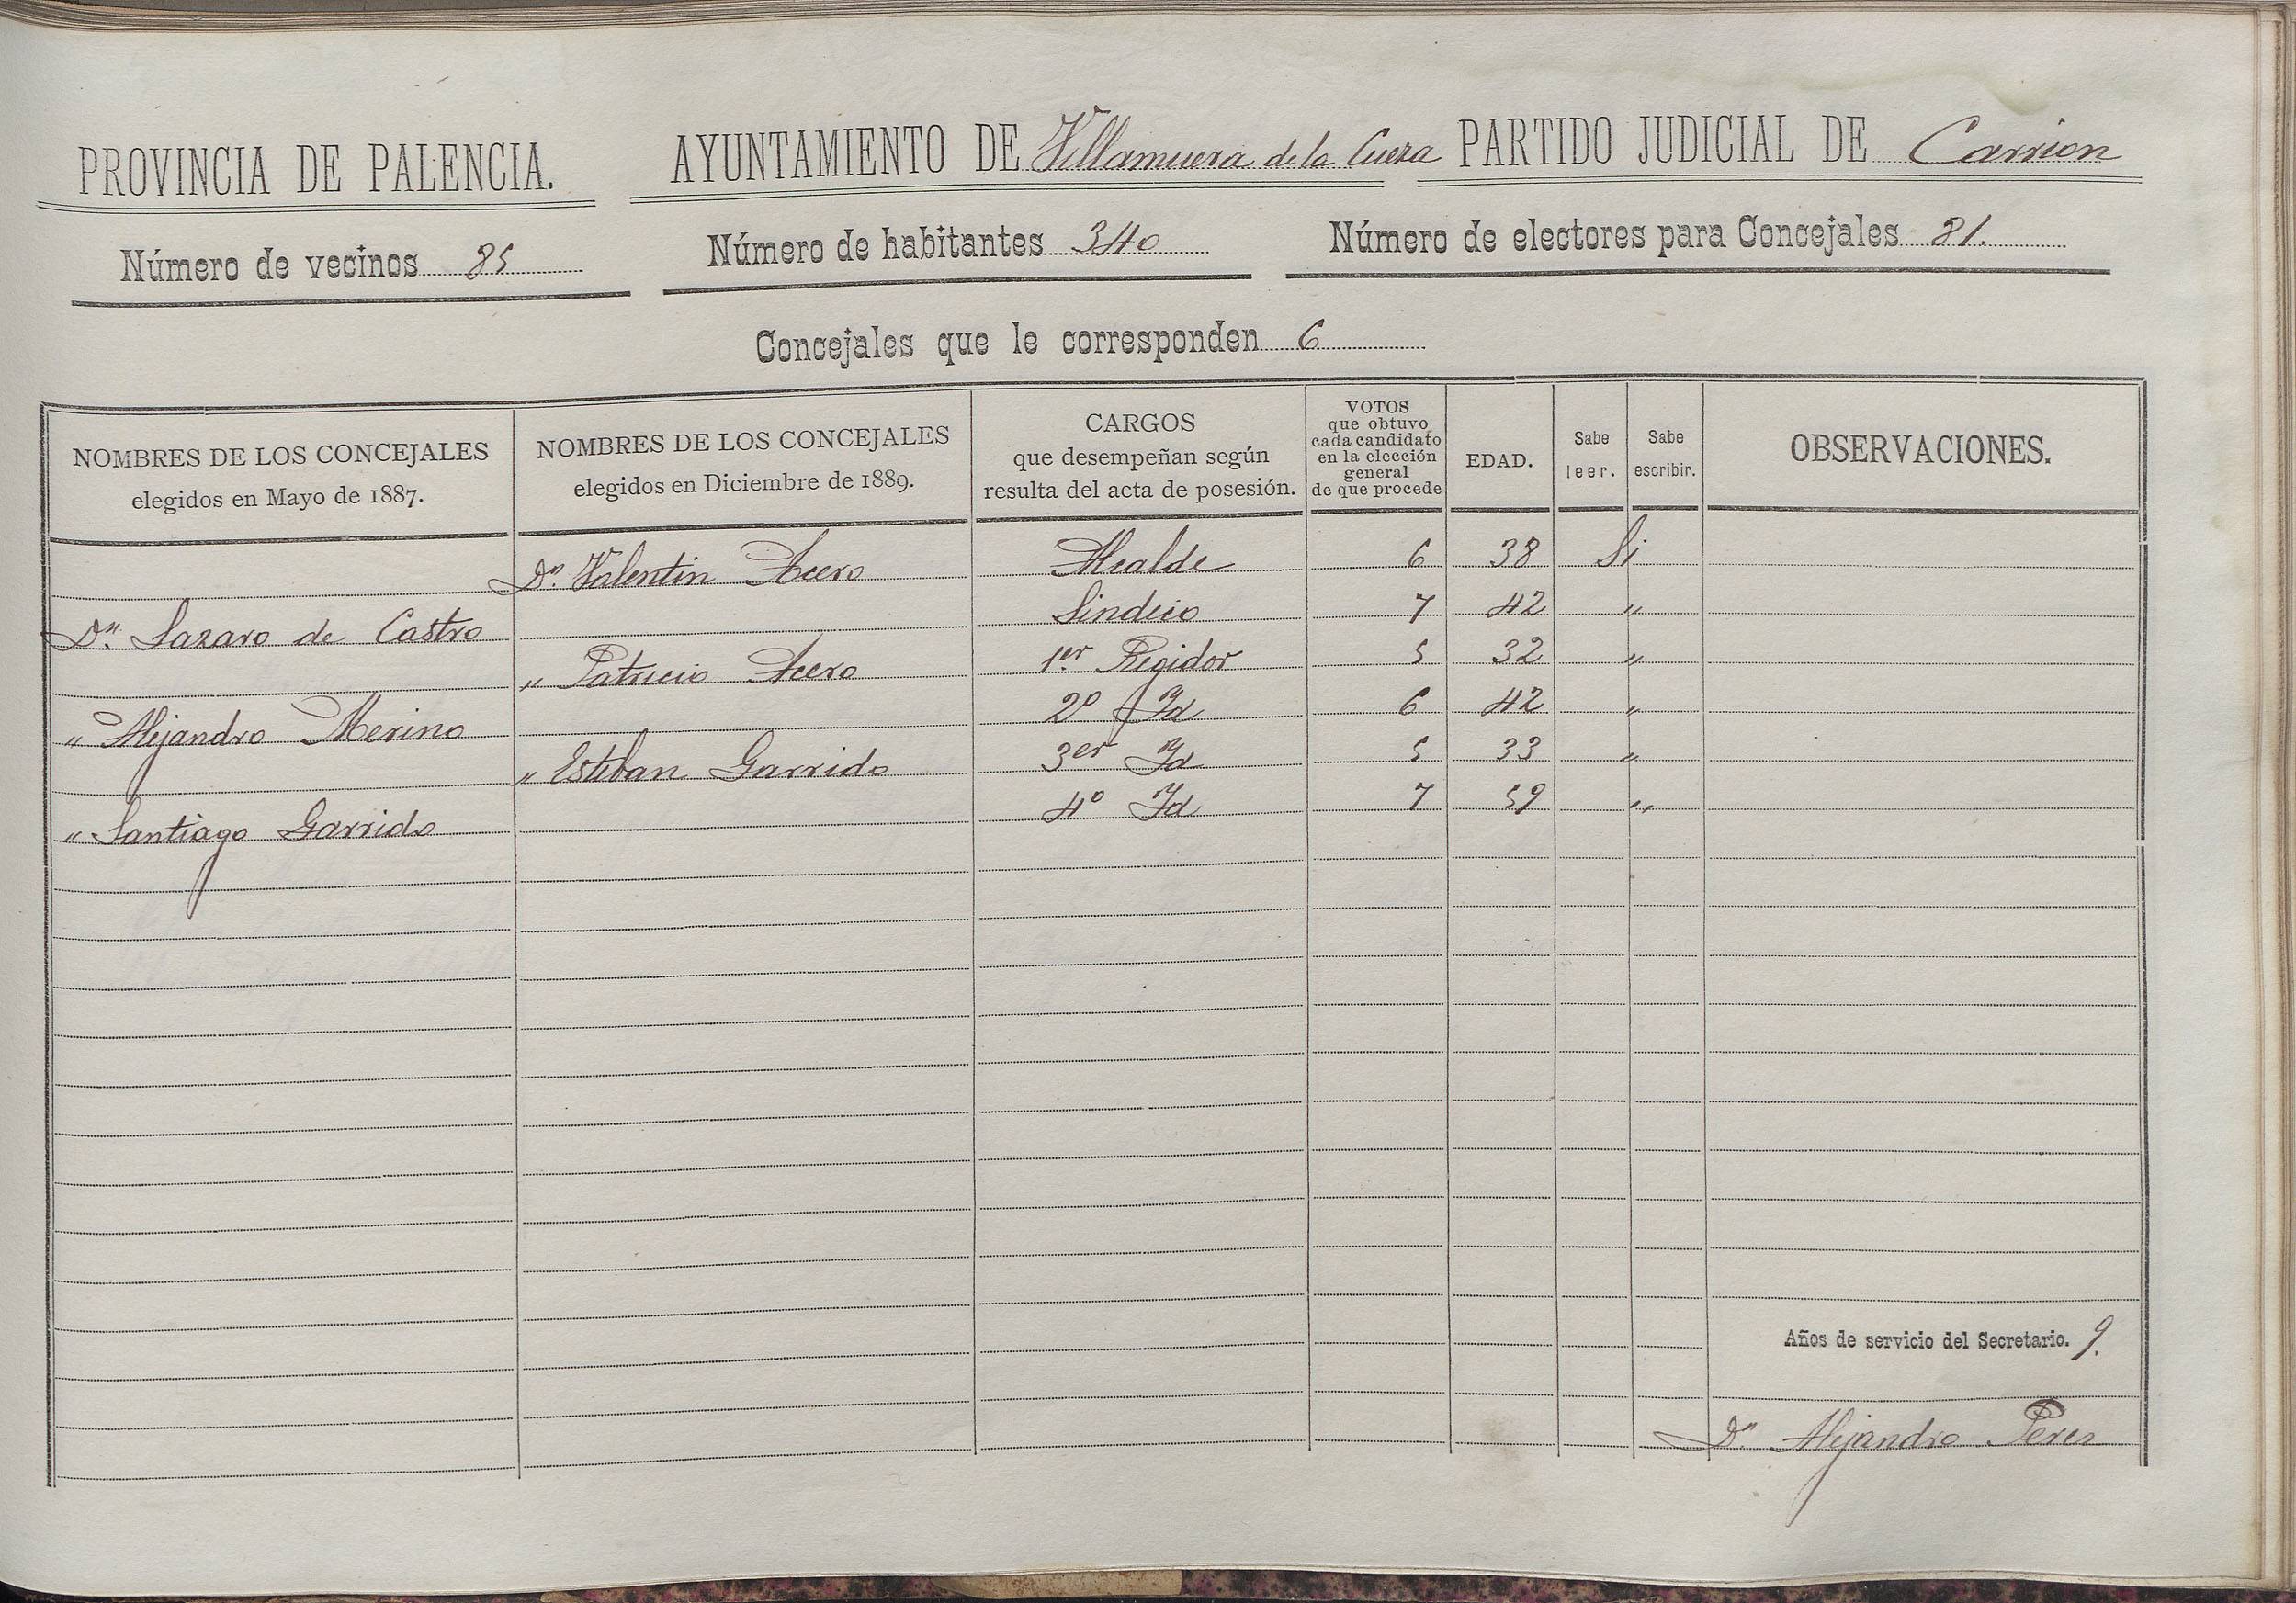 PROVINCIA DE PALENCIA. AYUNTAMIENTO DE Villamuera de la Cueza PARTIDO JUDICIAL DE Carrion
Número de vecinos 85 Número de habitantes 340 Número de electores para Concejales 81.
Concejales que le corresponden 6
NOMBRES DE LOS CONCEJALES elegidos en Mayo de 1887. NOMBRES DE LOS CONCEJALES elegidos en Diciembre de 1889. CARGOS que desempeñan según resulta del acta de posesión. VOTOS que obtuvo cada candidato en la elección general de que procede EDAD. Sabe leer. Sabe escribir. OBSERVACIONES.
Dn. Valentin Acero Alcalde 6 38 Si
Dn. Lazaro de Castro Sindico 7 42 "
" Patricio Acero 1er Regidor 5 32 "
" Alejandro Merino 2º Id 6 42 "
" Esteban Garrido 3er Id 5 33 "
" Santiago Garrido 4º Id 7 59 "
Años de servicio del Secretario. 9.
Dn. Alejandro Perez